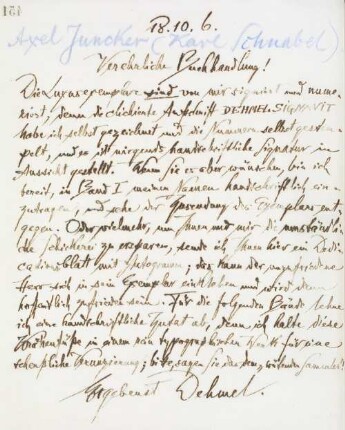 161
18.10.6.
Axel Juncker (Karl Schnabel)
Verehrliche Buchhandlung!
Die Luxusexemplare sind von mir signiert und nume-
riert, denn die Aufschrift DEHMEL SIGNAVIT
habe ich selbst gezeichnet und die Nummern selbst gestem-
pelt, und es ist nirgends handschriftliche Signatur in
Aussicht gestellt. Wenn Sie es aber wünschen, bin ich
bereit, in Band I meinen Namen handschriftlich ein-
zutragen, und sehe der Zusendung des Exemplars ent-
gegen. Oder vielmehr, um Ihnen und mir die umständli-
che Schickerei zu ersparen, sende ich Ihnen hier ein Dedi-
cationsblatt mit Autogramm; das kann der unzufriedene
Herr sich in sein Exemplar einkleben und wird dann
hoffentlich zufrieden sein. Für die folgenden Bände lehne
ich eine handschriftliche Zutat ab, denn ich halte diese
in einem rein typographischen Werk für eine
scheußliche; bitte, sagen Sie das dem wütenden Sammler!
Ergebenst Dehmel.